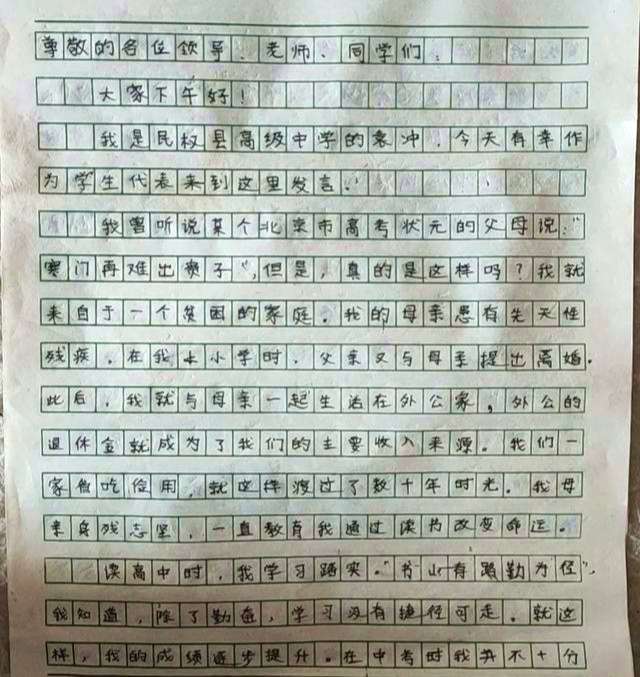 尊敬的各位领导、老师、同学们:
大家下午好!
我是民权县高级中学的袁冲,今天有幸作
为学生代表来到这里发言.
我曾听说某个北京市高考状元的父母说:"
寒门再难出贵子",但是,真的是这样吗?我就
来自于一个贫困的家庭.我的母亲患有先天性
残疾.在我上小学时,父亲又与母亲提出离婚.
此后,我就与母亲一起生活在外公家,外公的
退休金就成为了我们的主要收入来源。我们一
家省吃俭用,就这样渡过了数十年时光.我母
亲身残志坚,一直教育我通过读书改变命运。
读高中时,我学习踏实."书山有路勤为径",
我知道,除了勤奋,学习没有捷径可走.就这
样,我的成绩逐步提升。在中考时我并不十分